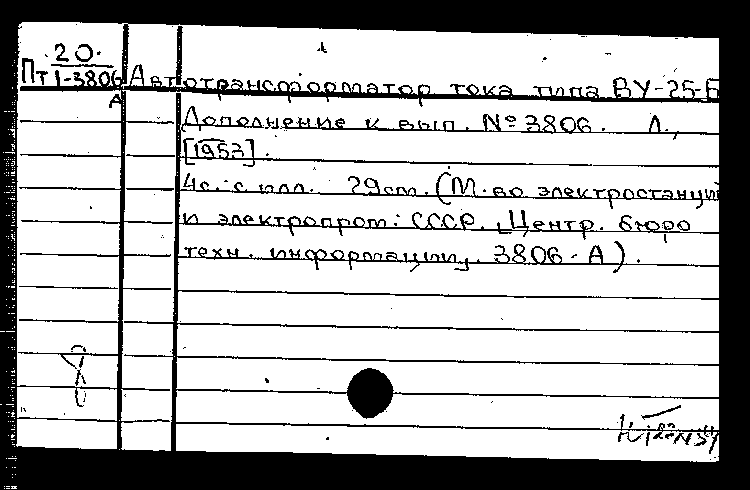 20.
Пт 1-3806 Автотрансформатор тока типа ВУ-25-Б
А
Дополнение к вып. № 3806. Л.,
[1953].
4с. с илл. 29см. (М-во электростанций
и электропром. СССР. Центр. бюро
техн. информации. 3806-А).
8